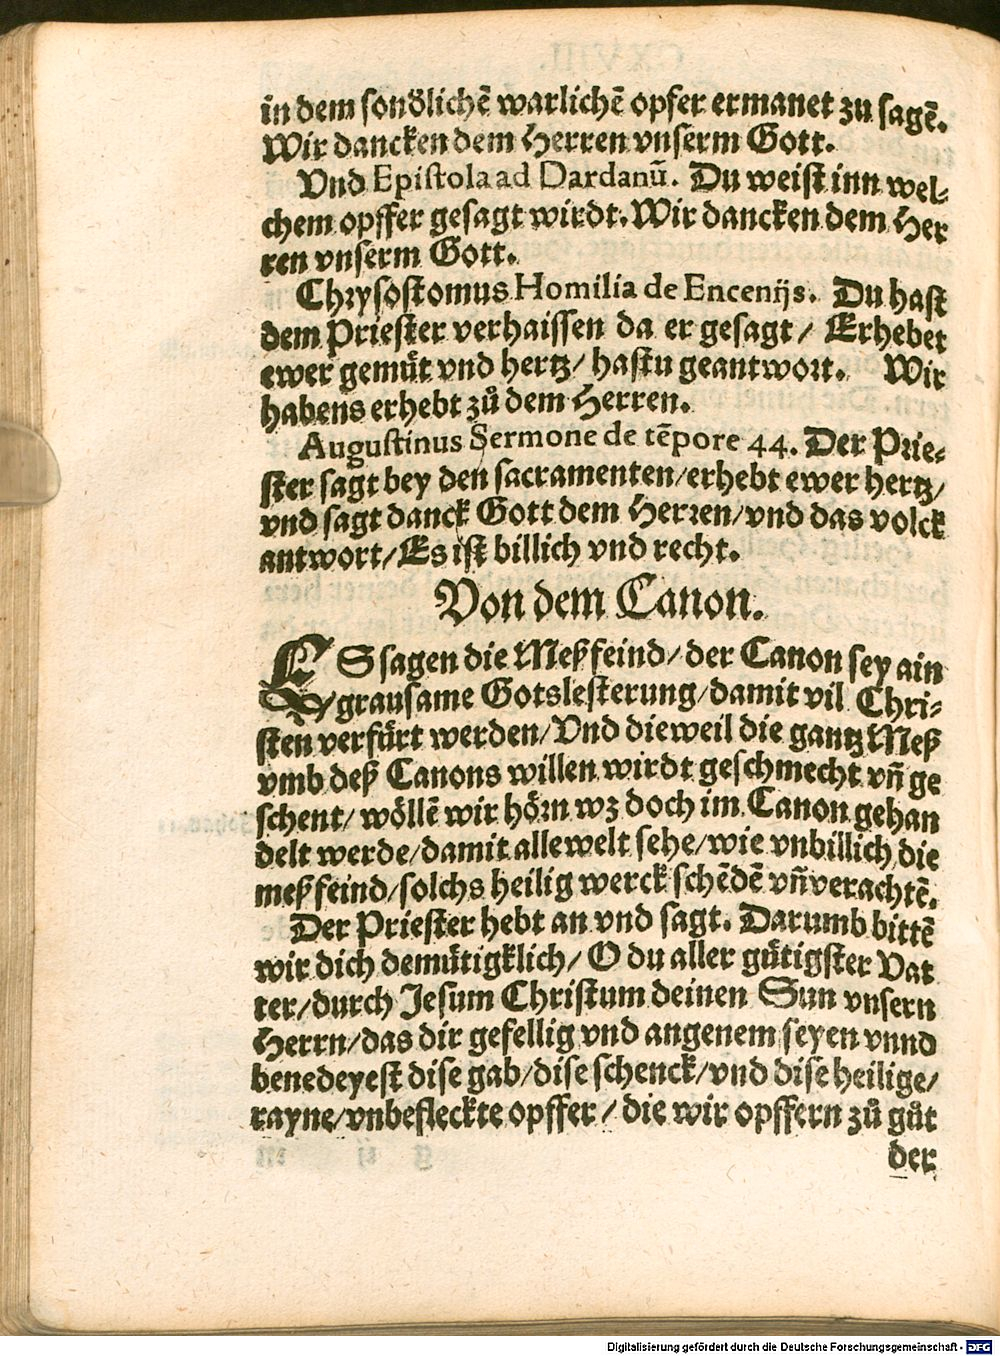 in dem sonölichē warlichē opfer ermanet zu sagē.
Wir dancken dem Herren vnserm Gott.
Vnd Epistola ad Dardanū. Du weist inn wel-
chem opffer gesagt wirdt. Wir dancken dem Her
ren vnserm Gott.
Chrysostomus Homilia de Encenijs. Du hast
dem Priester verhaissen da er gesagt / Erhebet
ewer gemuͤt vnd hertz / hastu geantwort. Wir
habens erhebt zuͦ dem Herren.
Augustinus Sermone de tēpore 44. Der Prie-
ster sagt bey den sacramenten / erhebt ewer hertz /
vnd sagt danck Gott dem Herren / vnd das volck
antwort / Es ist billich vnd recht.
Von dem Canon.
ES sagen die Meßfeind / der Canon sey ain
grausame Gotslesterung / damit vil Chri-
sten verfuͤrt werden / Vnd dieweil die gantz Meß
vmb deß Canons willen wirdt geschmecht vñ ge
schent / woͤllē wir hoͤrn wz doch im Canon gehan
delt werde / damit alle welt sehe / wie vnbillich die
meßfeind / solchs heilig werck schēdē vñ verachtē.
Der Priester hebt an vnd sagt. Darumb bittē
wir dich demuͤtigklich / O du aller guͤtigster Vat
ter / durch Jesum Christum deinen Sun vnsern
Herrn / das dir gefellig vnd angenem seyen vnnd
benedeyest dise gab / dise schenck / vnd dise heilige /
rayne / vnbefleckte opffer / die wir opffern zuͦ guͦt
der
Digitalisierung gefördert durch die Deutsche Forschungsgemeinschaft - DFG